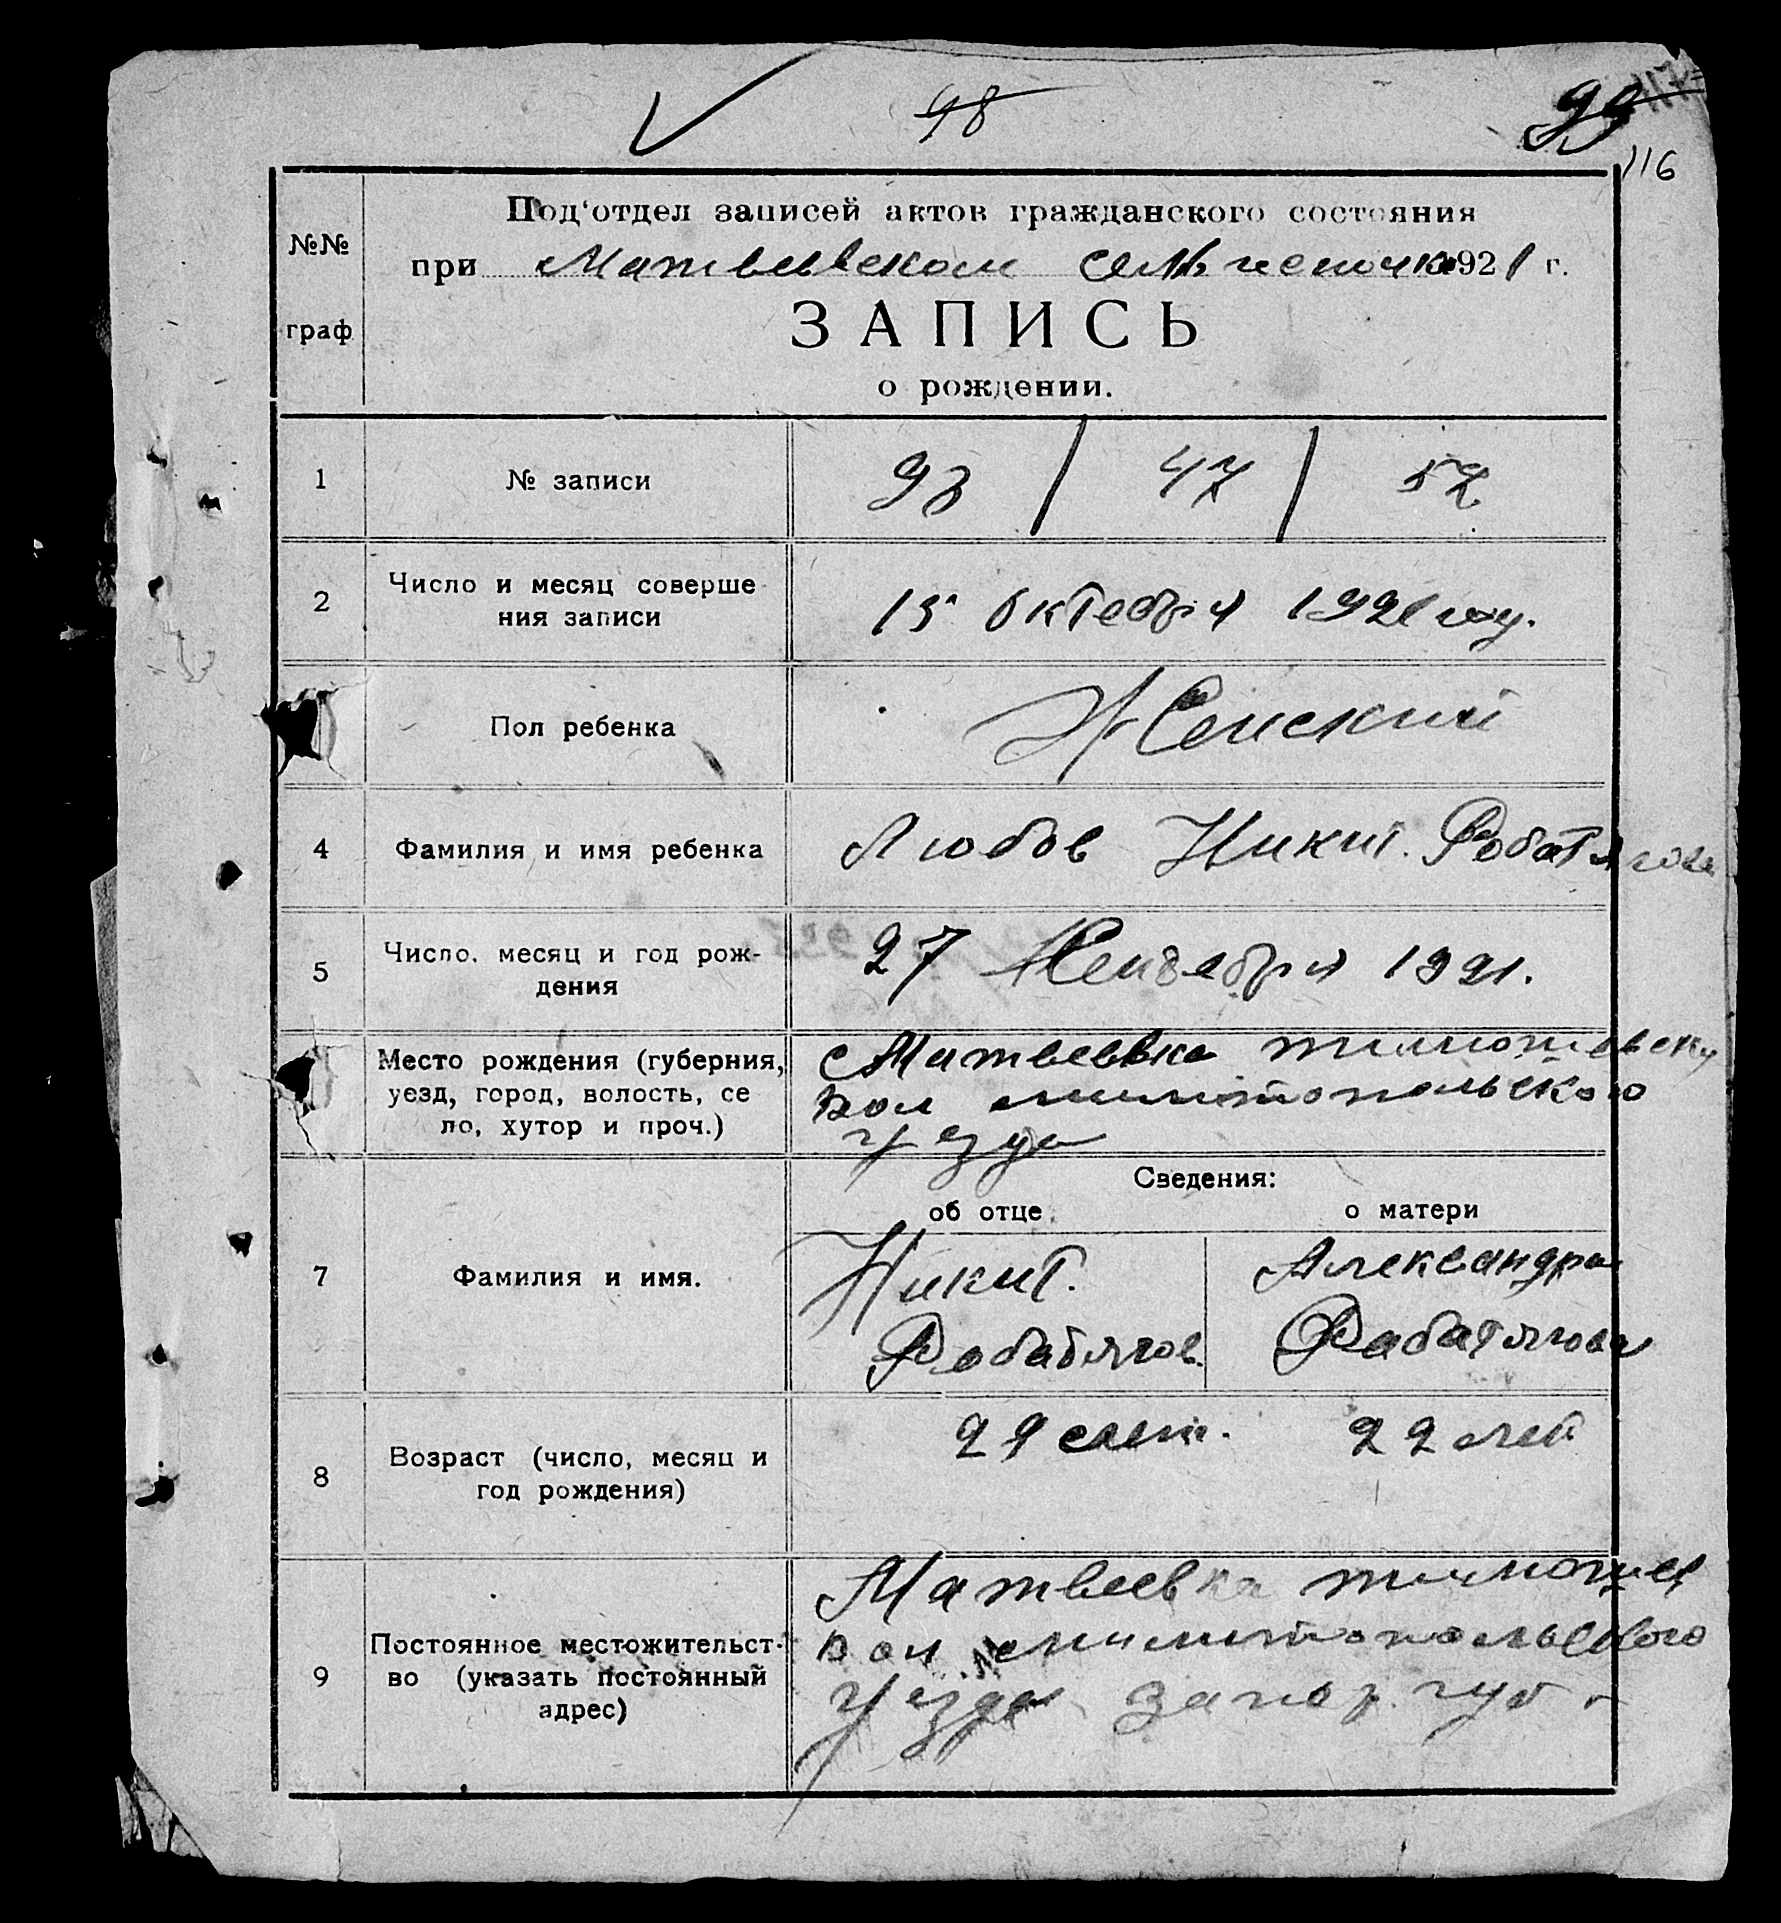 98
99
116
Под'отдел записей актов гражданского состояния
№№
при Матвеевском 1921 г.
граф
ЗАПИСЬ
о рождении.
1 № записи 93 / 47 / 57
2 Число и месяц соверше
ния записи 15 октебря 1921 году.
Пол ребенка Женский
4 Фамилия и имя ребенка Любов Никит. Робатягова
5 Число, месяц и год рож-
дения 27 Сентебря 1921.
Место рождения (губерния,
уезд, город, волость, се
ло, хутор и проч.)
Матвеевка
вол
уезда
Сведения:
об отце о матери
7 Фамилия и имя.
Никит. Александра
Робатягов. Рабатягова
8 Возраст (число, месяц и
год рождения)
29 лет. 22 лет
9 Постоянное местожительст-
во (указать постоянный
адрес)
Матвеевка
вол
уезда запор. губ.